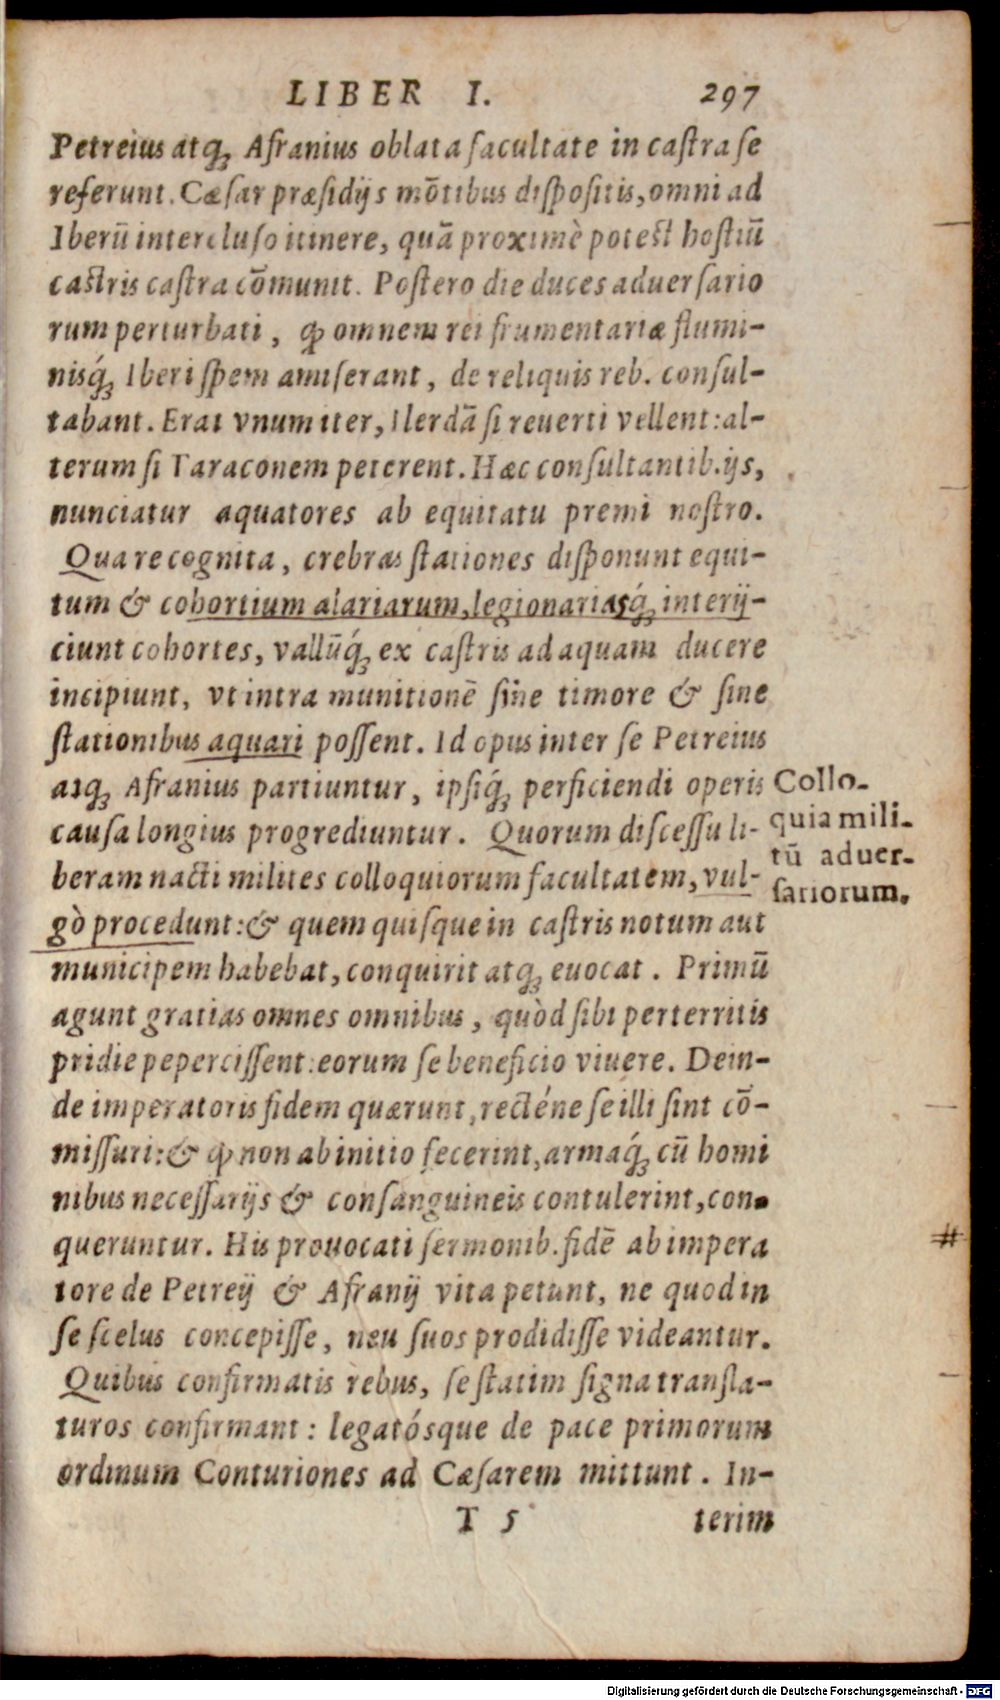 LIBER I. 297
Petreius atq; Afranius oblata facultate in castra se
referunt. Cæsar præsidijs mõtibus dispositis, omni ad
Iberũ intercluso itinere, quã proximè potest hostiũ
castris castra cõmunit. Postero die duces aduersario
rum perturbati, ꝙ omnem rei frumentariæ flumi-
nisq́; Iberi spem amiserant, de reliquis reb. consul-
tabant. Erat vnum iter, Ilerdã si reuerti vellent: al-
terum si Taraconem peterent. Hæc consultantib. ijs,
nunciatur aquatores ab equitatu premi nostro.
Qua re cognita, crebras stationes disponunt equi-
tum & cohortium alariarum, legionariasq́; interij-
ciunt cohortes, vallũq́; ex castris ad aquam ducere
incipiunt, vt intra munitionẽ sine timore & sine
stationibus aquari possent. Id opus inter se Petreius
atq; Afranius partiuntur, ipsiq́; perficiendi operis
causa longius progrediuntur. Quorum discessu li-
beram nacti milites colloquiorum facultatem, vul-
gò procedunt: & quem quisque in castris notum aut
municipem habebat, conquirit atq; euocat. Primũ
agunt gratias omnes omnibus, quòd sibi perterritis
pridie pepercissent: eorum se beneficio viuere. Dein-
de imperatoris fidem quærunt, recténe se illi sint cõ-
missuri: & ꝙ non ab initio fecerint, armaq́; cũ homi
nibus necessarijs & consanguineis contulerint, con-
queruntur. His prouocati sermonib. fidẽ ab impera
tore de Petreij & Afranij vita petunt, ne quod in
se scelus concepisse, neu suos prodidisse videantur.
Quibus confirmatis rebus, se statim signa transla-
turos confirmant: legatósque de pace primorum
ordinum Conturiones ad Cæsarem mittunt. In-
T 5 terim
Collo-
quia mili-
tũ aduer-
sariorum.
#
Digitalisierung gefördert durch die Deutsche Forschungsgemeinschaft - DFG